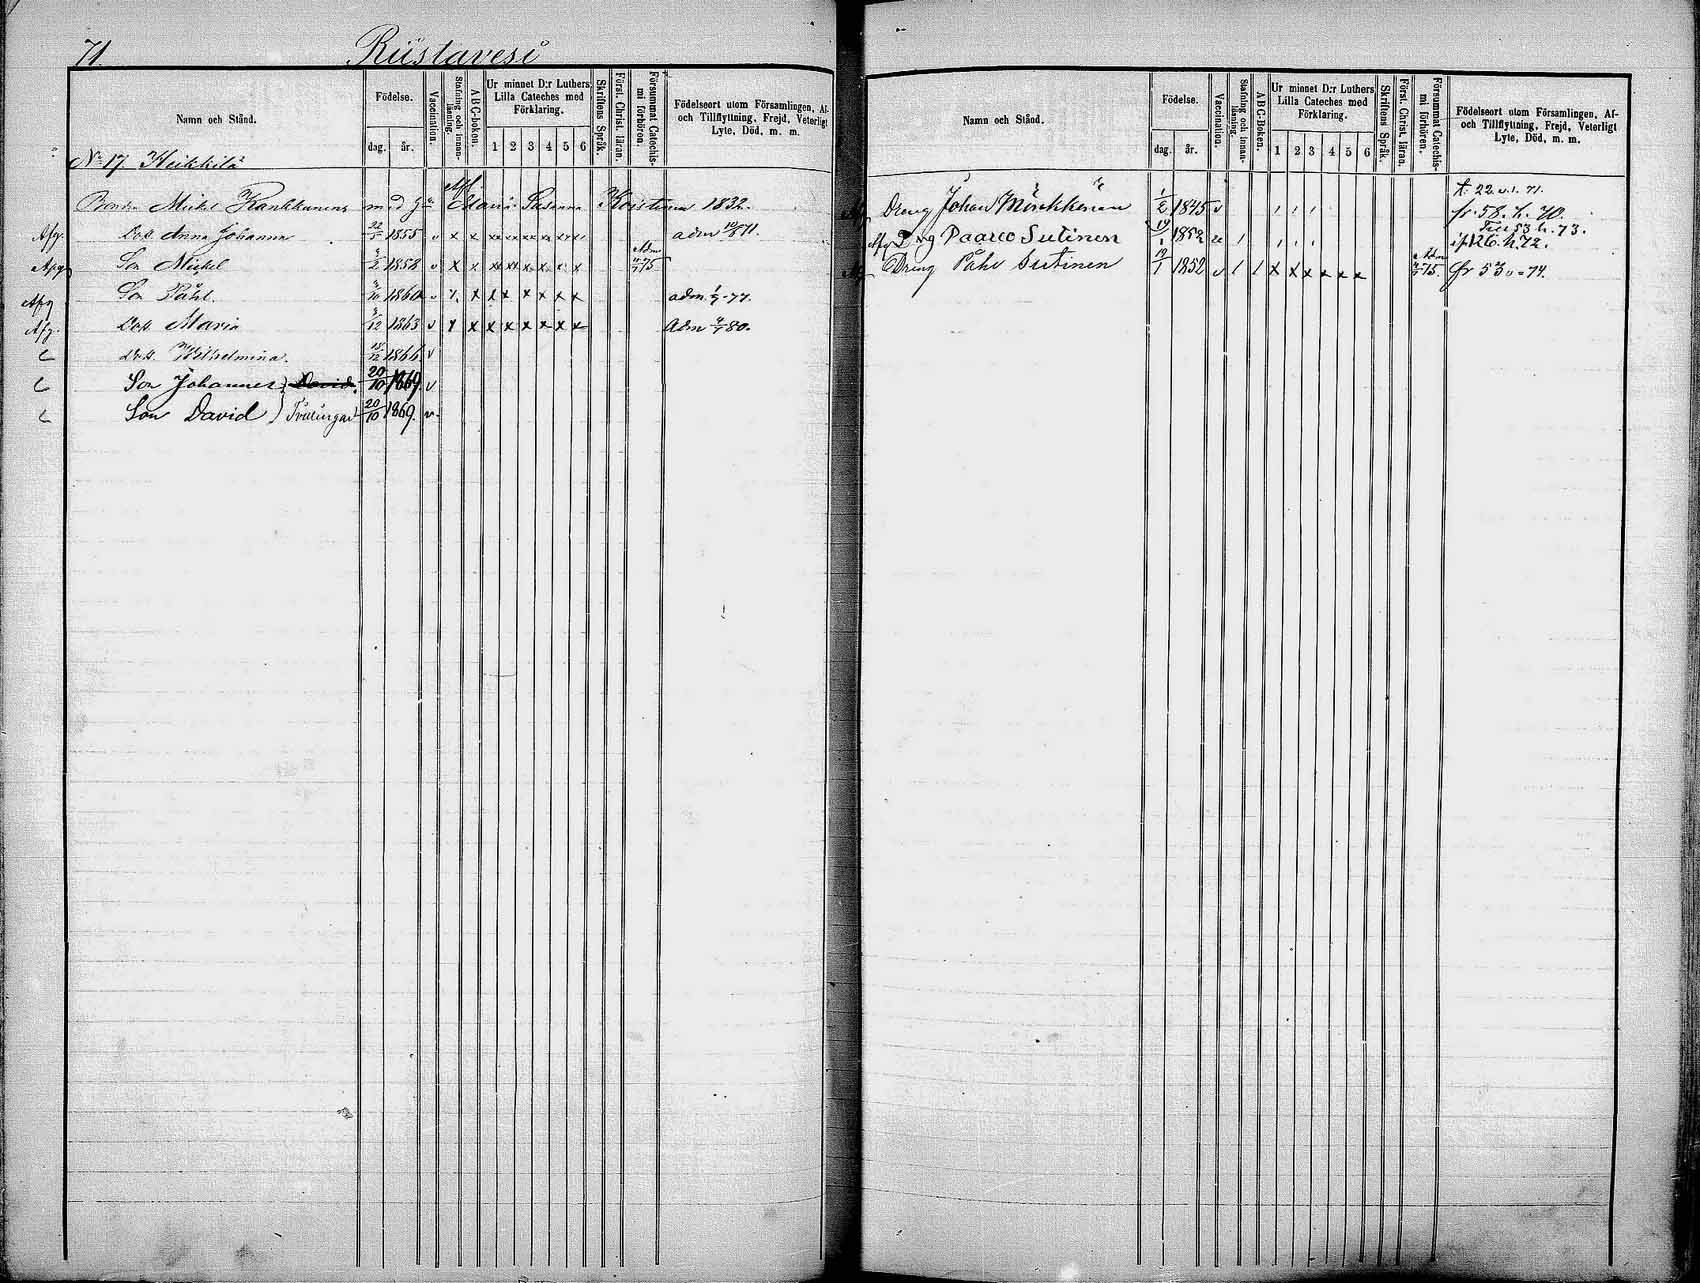 71.
Riistavesi
Namn och Stånd.
Födelse.
dag. år.
Vaccination.
Stafning och innanläsning.
ABC-boken.
Ur minnet D:r Luthers Lilla Cateches med Förklaring.
1 2 3 4 5 6
Skriftens Språk.
Först. Christ. läran.
Försummat Catechismi förhören.
Födelseort utom Församlingen, Af- och Tillflyttning, Frejd, Veterligt Lyte, Död, m. m.
No 17 Heikkilä
Michel Kankkunens m. d. Maria Susanna Koistinen 1832.
Afg. Dott. Anna Johanna 1855 v x x x x x x x x adm 71.
Afg Son Michel 1858 v x x x x x x x x Adm 75
Afg Son Påhl. 1860 v x x x x x x x adm. 77.
Afg. Dott Maria 12 1863 v x x x x x x x Adm 80.
C dott. Wilhelmina. 12 1866 v
C Son Johannes } David. 20/10 1869. v
C Son David } Tvillingar 20/10 1869. v
Namn och Stånd.
Födelse.
dag. år.
Vaccination.
Stafning och innanläsning.
ABC-boken.
Ur minnet D:r Luthers Lilla Cateches med Förklaring.
1 2 3 4 5 6
Skriftens Språk.
Först. Christ. läran.
Försummat Catechismi förhören.
Födelseort utom Församlingen, Af- och Tillflyttning, Frejd, Veterligt Lyte, Död, m. m.
t. 22 71.
Dreng Johan 1/2 1845 v fr. 58. h. 70.
53 h. 73.
Afg Paavo Sutinen 1852 126. h. 72.
Dreng Påhl Sutinen 19/1 1852 v x x x x x x Adm 75. fr 53 74.